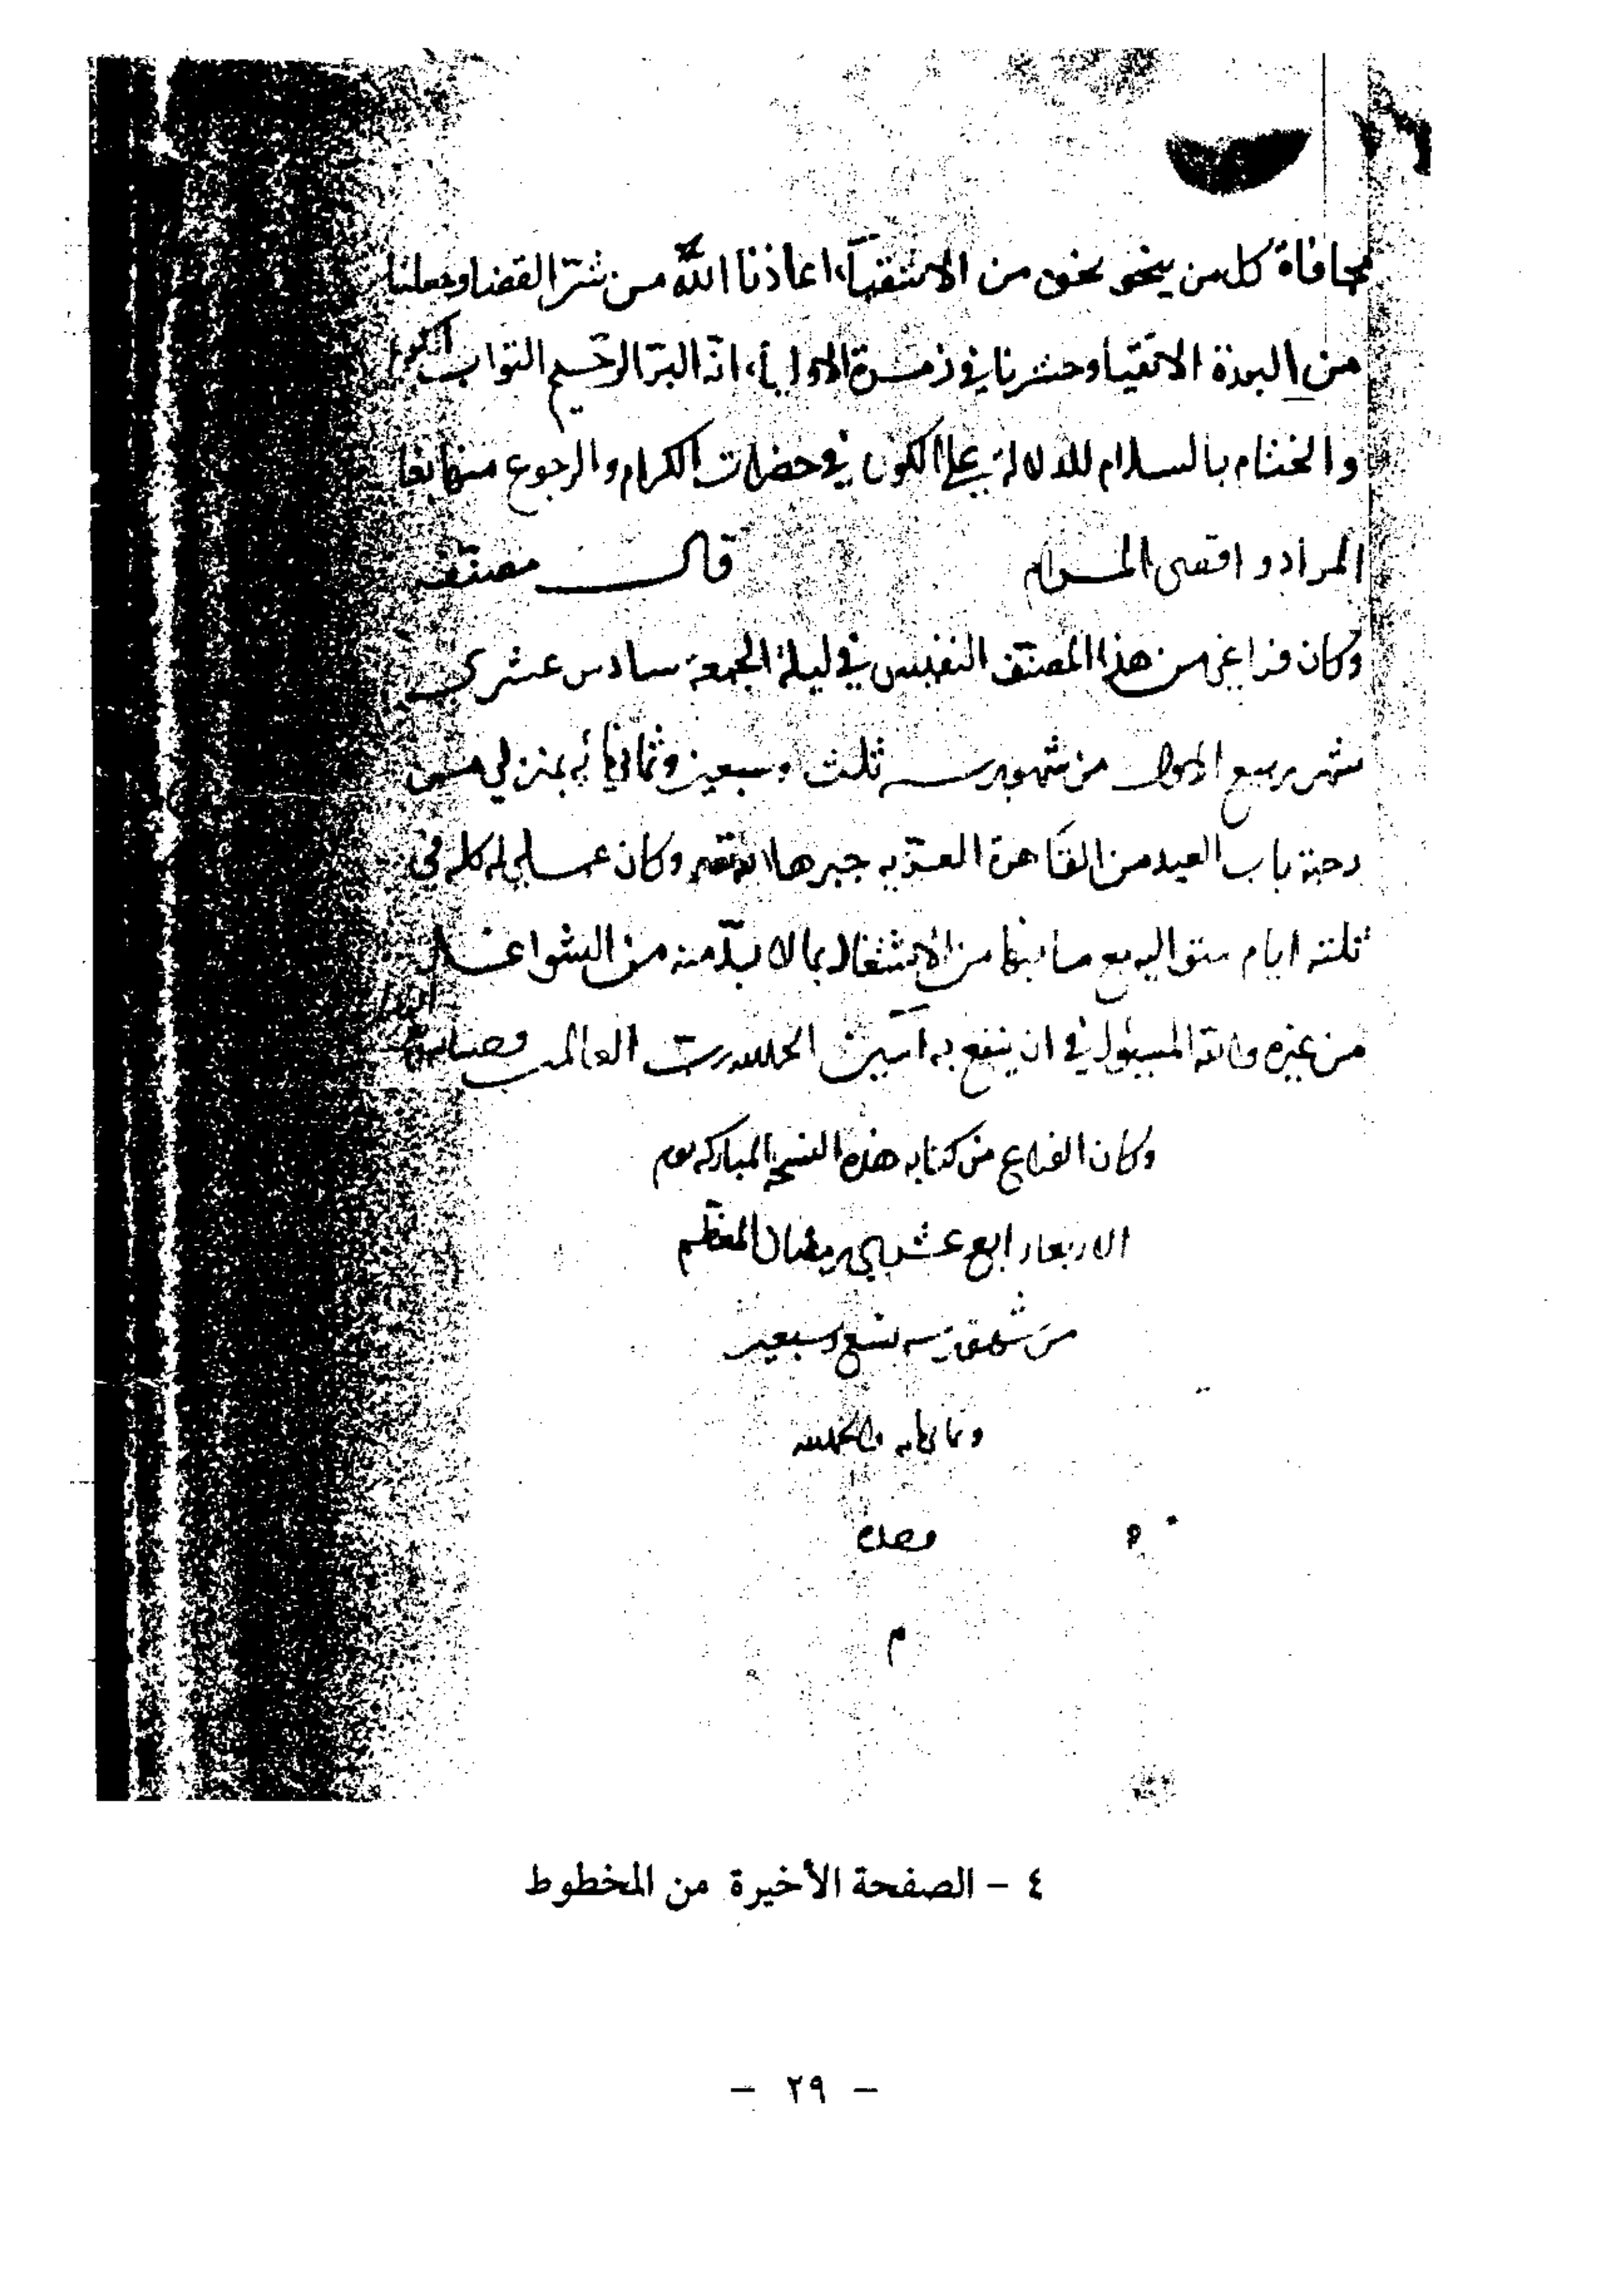 مجافاة كل من ينحو نحوه من الاشقياء، اعاذنا الله من شر القضا وجعلنا
من البررة الاتقيا وحشرنا في زمرة الاوليا، انه البر الرحيم التواب الكريم
والختام بالسلام للدلالة على الكون في حضرات الكرام والرجوع منها
المراد واقصى المرام قال مصنفه
وكان فراغي من هذا المصنف النفيس في ليلة الجمعة سادس عشري
شهر ربيع الاول من شهور سنة ثلث وسبعين وثمانمائه بمنزلي من
رحبة باب العيد من القاهرة المعزيه جبرها الله وكان عملي له كله في
ثلثه ايام متواليه مع ما فيها من الاشتغال بما لا بد منه من الشواغل
من غيره والله المسئول في ان ينفع به آمين الحمد لله رب العالمين
وكان الفراغ من كتابه هذه النسخه المباركه يوم
الاربعا رابع عشري رمضان المعظم
من شهور سنه تسع وسبعين
وثمانمايه والحمد لله
وحده
م
٤ - الصفحة الأخيرة من المخطوط
- ٢٩ -